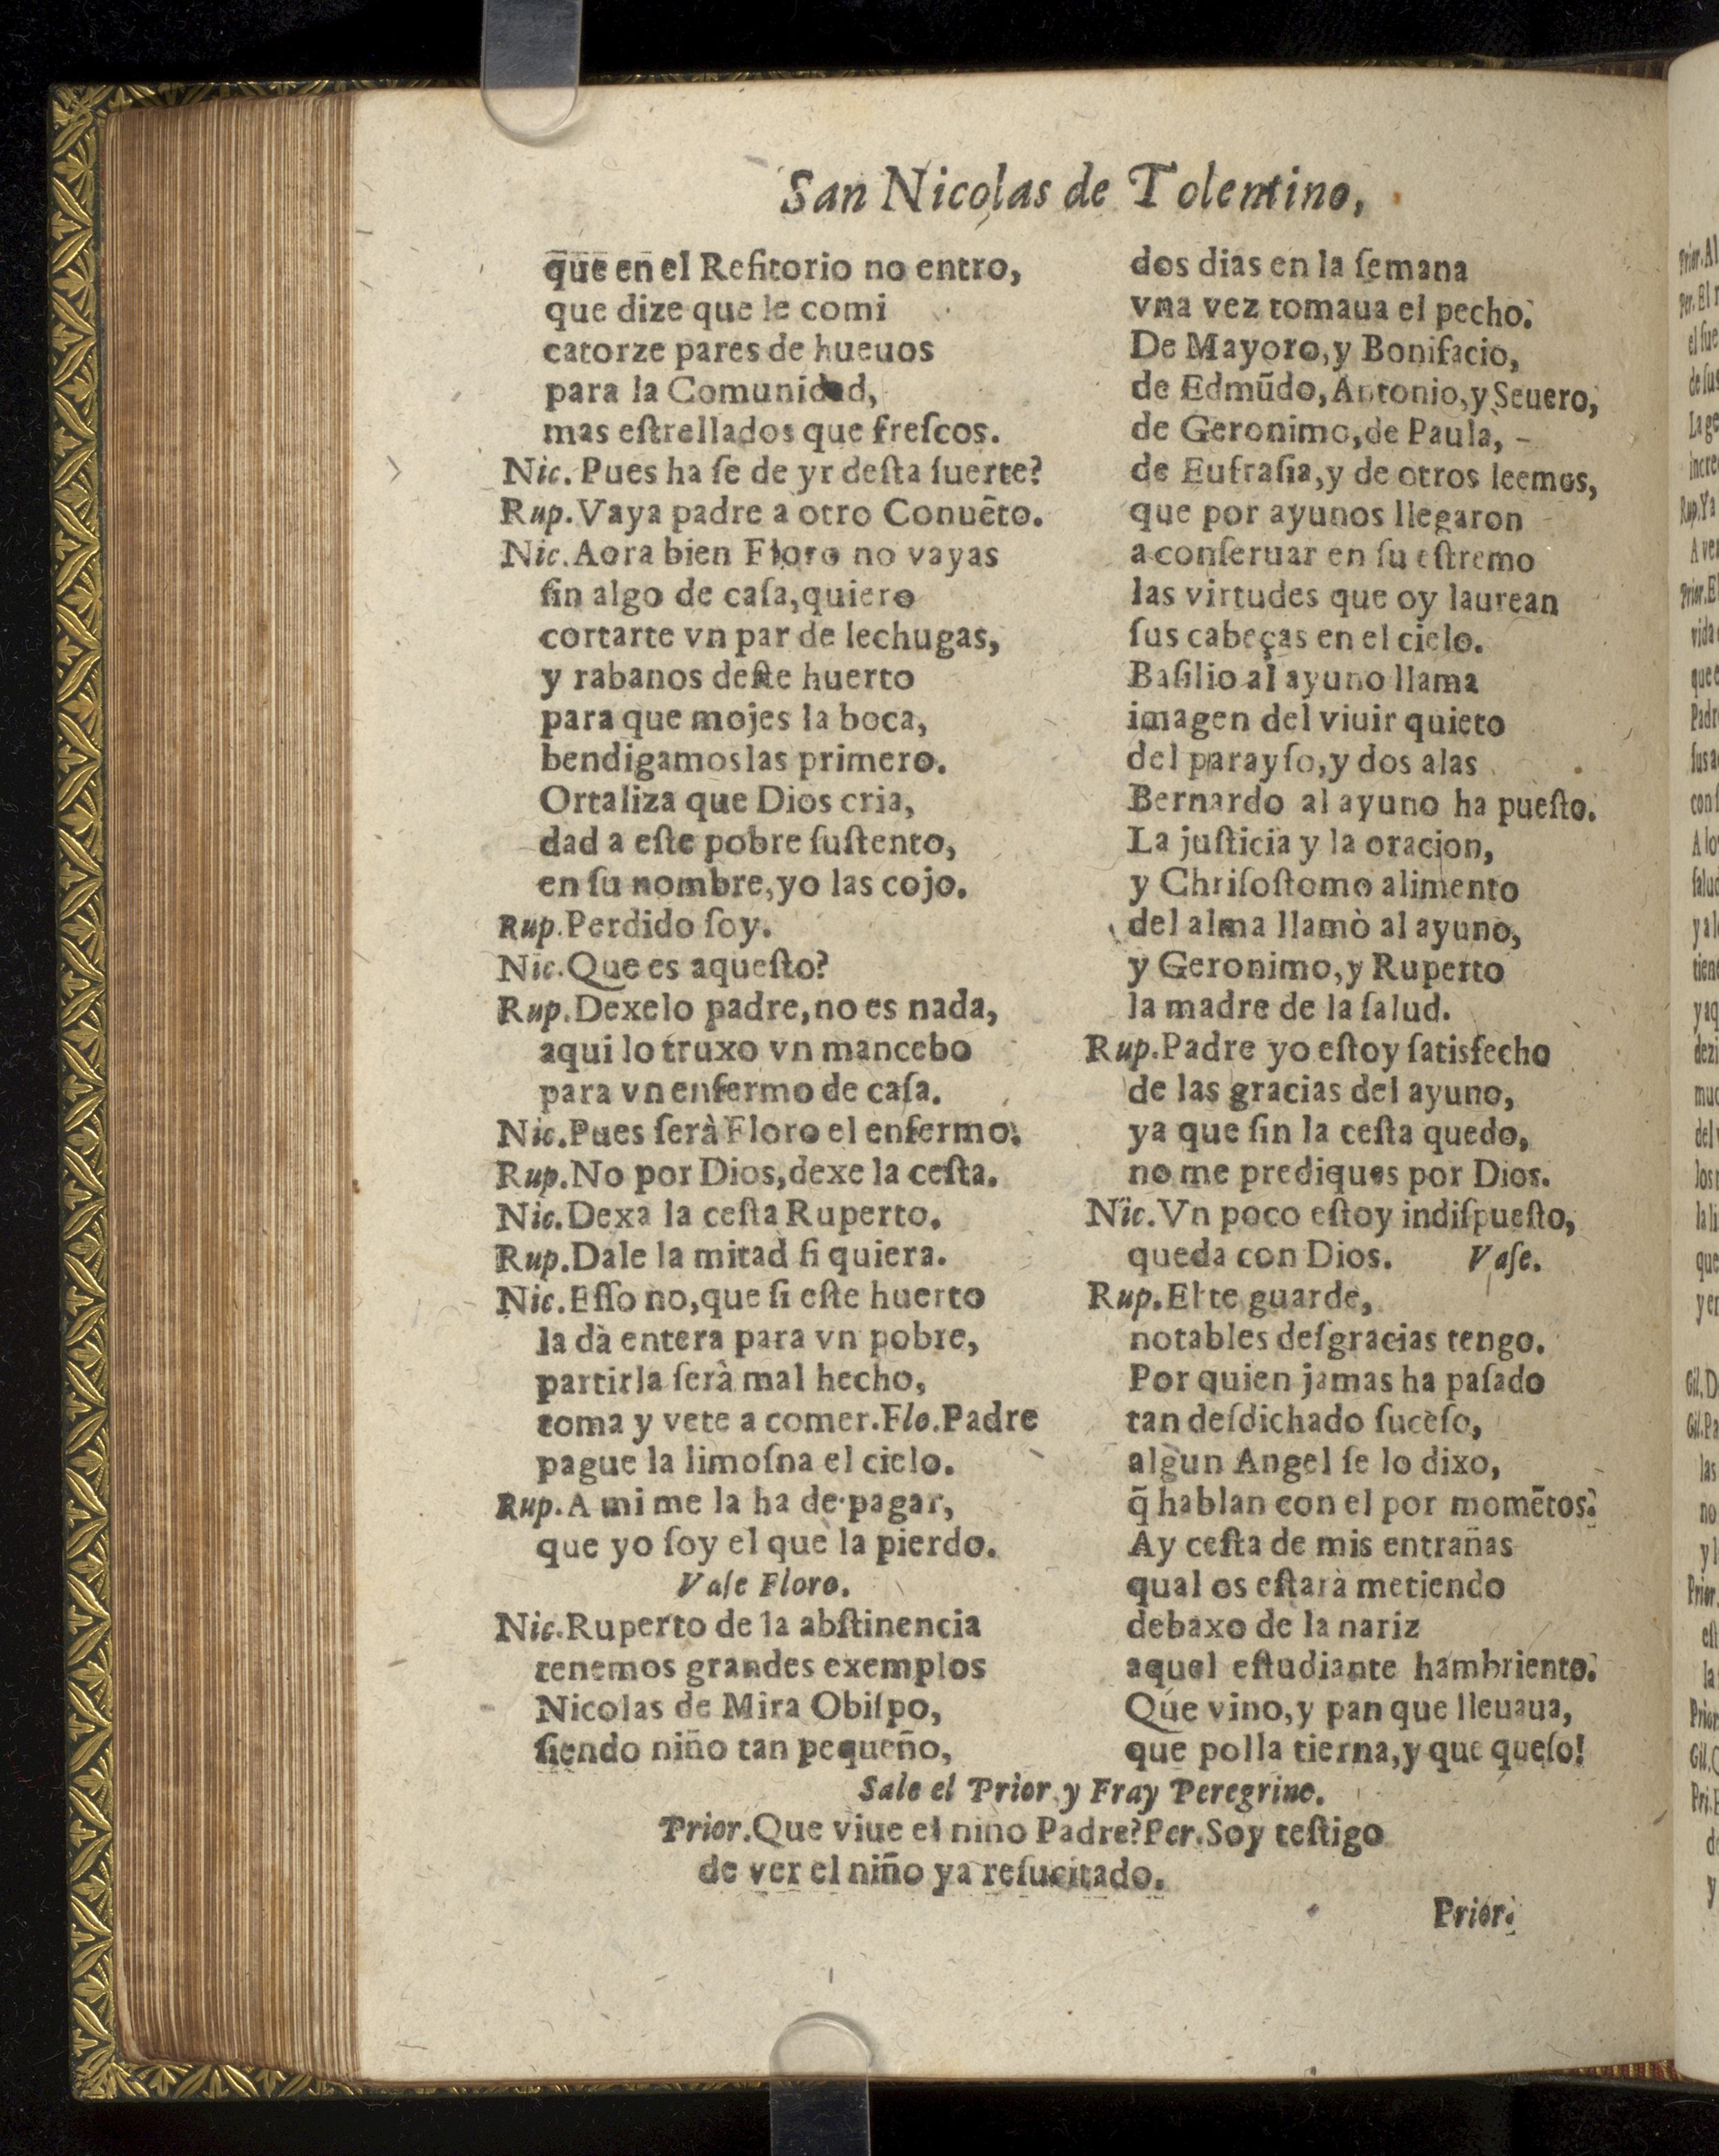 San Nicolas de Tolentino,
que en el Refitorio no entro,
que dize que le comi
catorze pares de hueuos
para la Comunidad,
mas eſtrellados que freſcos.
Nic. Pues ha ſe de yr deſta ſuerte?
Rup. Vaya padre a otro Conuẽto.
Nic. Aora bien Floro no vayas
ſin algo de caſa, quiero
cortarte vn par de lechugas,
y rabanos deſte huerto
para que mojes la boca,
bendigamoslas primero.
Ortaliza que Dios cria,
dad a eſte pobre ſuſtento,
en ſu nombre, yo las cojo.
Rup. Perdido ſoy.
Nic. Que es aqueſto?
Rup. Dexelo padre, no es nada,
aqui lo truxo vn mancebo
para vn enfermo de caſa.
Nic. Pues ſerà Floro el enfermo.
Rup. No por Dios, dexe la ceſta.
Nic. Dexa la ceſta Ruperto.
Rup. Dale la mitad ſi quiera.
Nic. Eſſo no, que ſi eſte huerto
la dà entera para vn pobre,
partirla ſerà mal hecho,
toma y vete a comer. Flo. Padre
pague la limoſna el cielo.
Rup. A mi me la ha de pagar,
que yo ſoy el que la pierdo.
Vaſe Floro.
Nic. Ruperto de la abſtinencia
tenemos grandes exemplos
Nicolas de Mira Obiſpo,
ſiendo niño tan pequeño,
dos dias en la ſemana
vna vez tomaua el pecho.
De Mayoro, y Bonifacio,
de Edmũdo, Antonio, y Seuero,
de Geronimo, de Paula,
de Eufraſia, y de otros leemos,
que por ayunos llegaron
a conſeruar en ſu eſtremo
las virtudes que oy laurean
ſus cabeças en el cielo.
Baſilio al ayuno llama
imagen del viuir quieto
del parayſo, y dos alas
Bernardo al ayuno ha pueſto.
La juſticia y la oracion,
y Chriſoſtomo alimento
del alma llamò al ayuno,
y Geronimo, y Ruperto
la madre de la ſalud.
Rup. Padre yo eſtoy ſatisfecho
de las gracias del ayuno,
ya que ſin la ceſta quedo,
no me prediques por Dios.
Nic. Vn poco eſtoy indiſpueſto,
queda con Dios. Vaſe.
Rup. El te guarde,
notables deſgracias tengo.
Por quien jamas ha paſado
tan deſdichado ſuceſo,
algun Angel ſe lo dixo,
q̃ hablan con el por momẽtos.
Ay ceſta de mis entrañas
qual os eſtarà metiendo
debaxo de la nariz
aquel eſtudiante hambriento.
Que vino, y pan que lleuaua,
que polla tierna, y que queſo!
Sale el Prior y Fray Peregrino.
Prior. Que viue el nino Padre? Per. Soy teſtigo
de ver el niño ya reſucitado.
Prior.